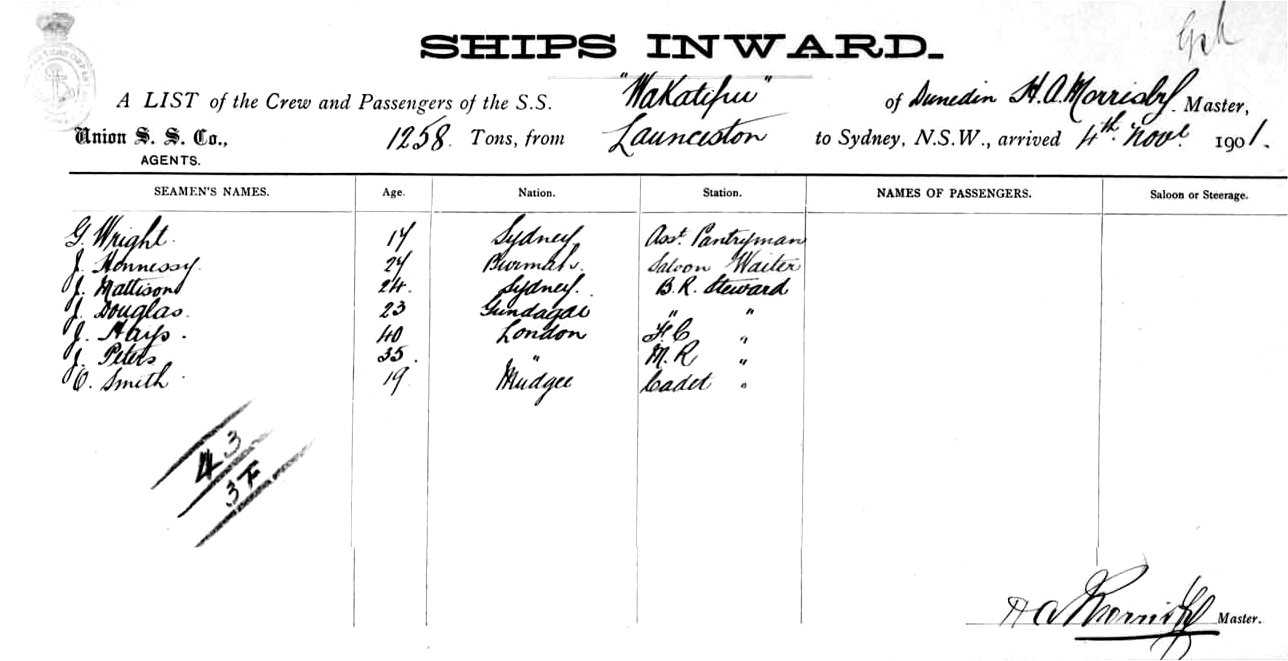 SHIPS INWARD.
A LIST of the Crew and Passengers of the S.S. "Wakatipu" of Dunedin H.A. Morrisby. Master,
Union S. S. Co., 1258. Tons, from Launceston to Sydney, N.S.W., arrived 4th Novr 1901.
AGENTS.
SEAMEN'S NAMES. Age. Nation. Station. NAMES OF PASSENGERS. Saloon or Steerage.
G. Wright. 17 Sydney Asst. Pantryman
J. Hennessy. 27 Burmah. Saloon Waiter
J. Mattison 24. Sydney. B.R. Steward
J. Douglas. 23 Gundagai " "
J. Hays. 40 London F.C "
J. Peters 35. " M.R "
O. Smith. 19 Mudgee Cadet "
43
3F
H A Morrisby Master.